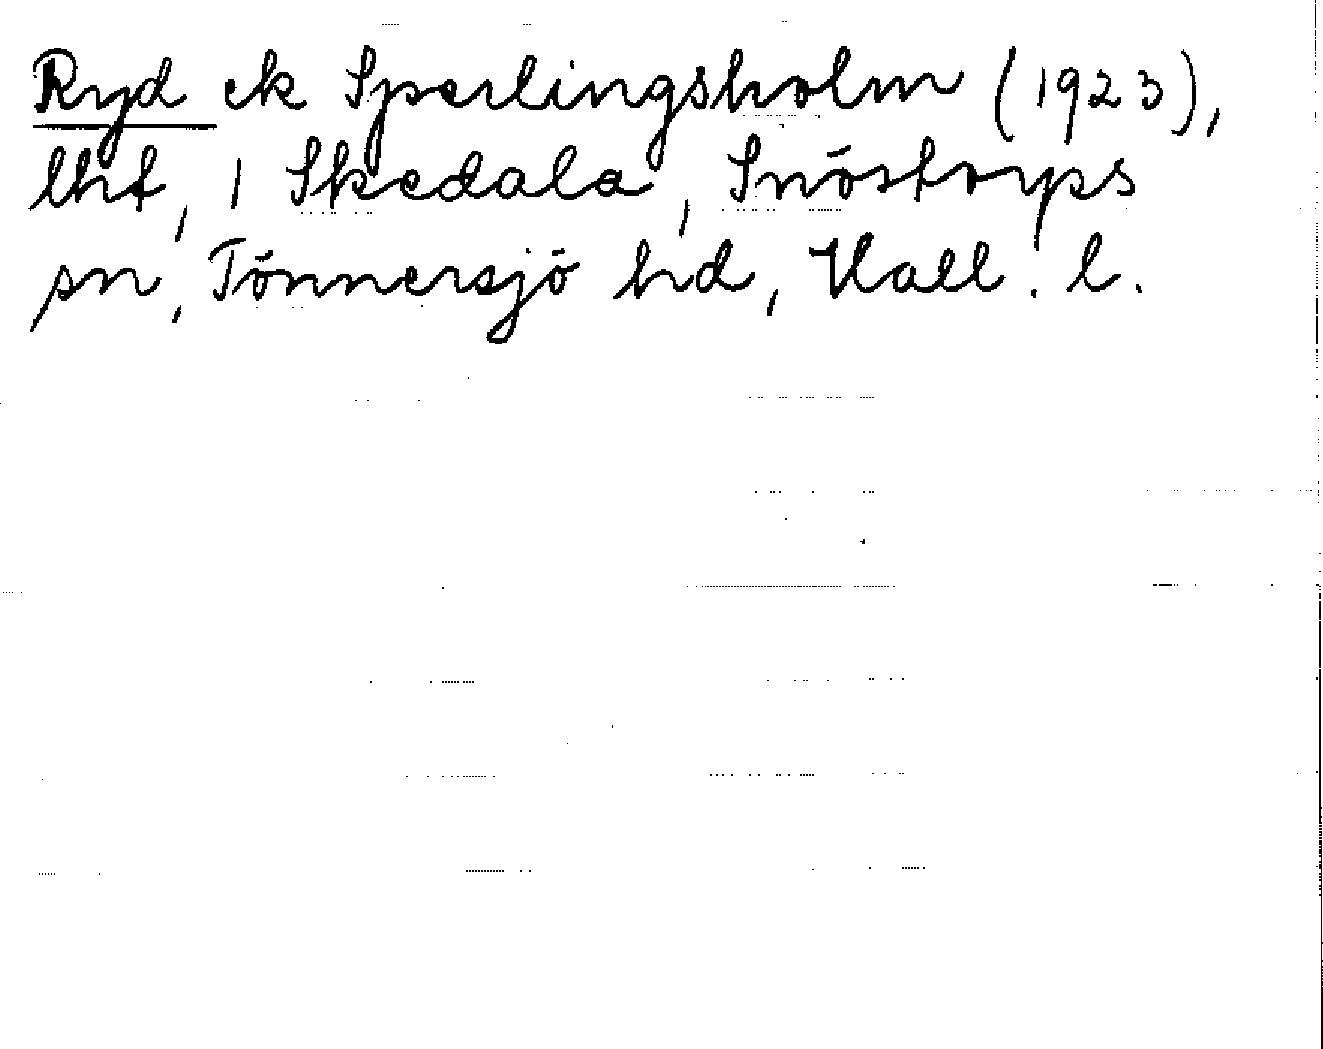 Ryd ek Sperlingsholm (1923),
lht, 1 Skedala, Snöstorps
sn, Tönnersjö hd, Hall. l.